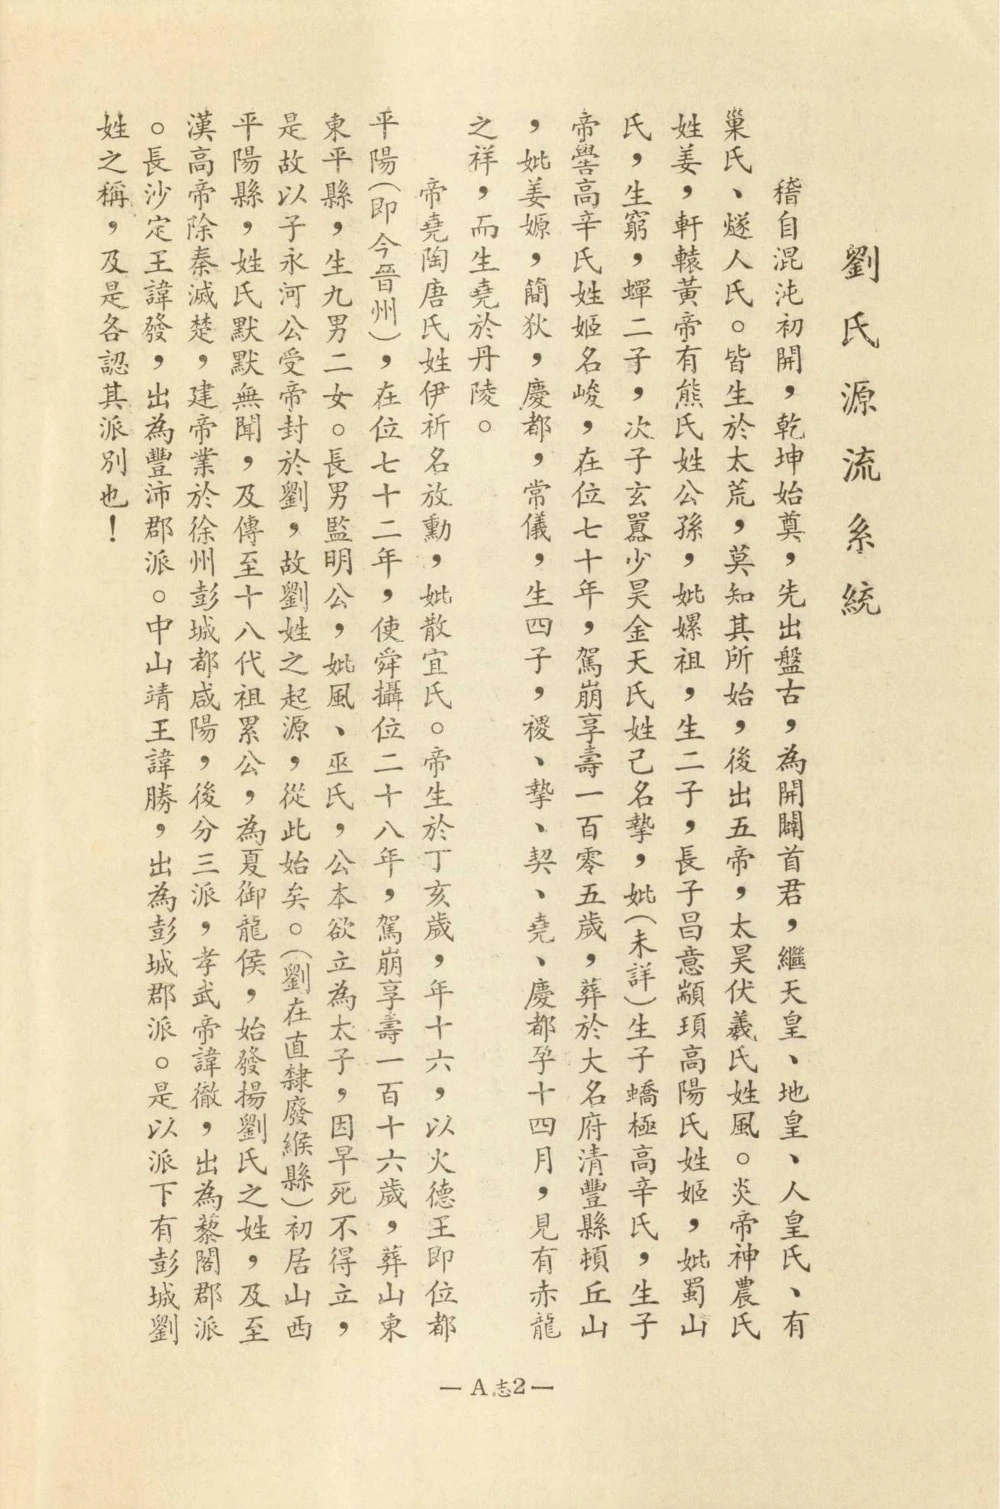 劉氏源流系統
稽自混沌初開，乾坤始奠，先出盤古，為開闢首君，繼天皇、地皇、人皇氏、有
巢氏、燧人氏。皆生於太荒，莫知其所始，後出五帝，太昊伏羲氏姓風。炎帝神農氏
姓姜，軒轅黃帝有熊氏姓公孫，妣嫘祖，生二子，長子昌意顓頊高陽氏姓姬，妣蜀山
氏，生窮，蟬二子，次子玄囂少昊金天氏姓己名摯，妣（未詳）生子蟜極高辛氏，生子
帝嚳高辛氏姓姬名峻，在位七十年，駕崩享壽一百零五歲，葬於大名府清豐縣頓丘山
，妣姜嫄，簡狄，慶都，常儀，生四子，稷、摯、契、堯、慶都孕十四月，見有赤龍
之祥，而生堯於丹陵。
帝堯陶唐氏姓伊祈名放勳，妣散宜氏。帝生於丁亥歲，年十六，以火德王即位都
平陽（即今晉州），在位七十二年，使舜攝位二十八年，駕崩享壽一百十六歲，葬山東
東平縣，生九男二女。長男監明公，妣風、巫氏，公本欲立為太子，因早死不得立，
是故以子永河公受帝封於劉，故劉姓之起源，從此始矣。（劉在直隸廢緱縣）初居山西
平陽縣，姓氏默默無聞，及傳至十八代祖累公，為夏御龍侯，始發揚劉氏之姓，及至
漢高帝除秦滅楚，建帝業於徐州彭城都咸陽，後分三派，孝武帝諱徹，出為藜閣郡派
。長沙定王諱發，出為豐沛郡派。中山靖王諱勝，出為彭城郡派。是以派下有彭城劉
姓之稱，及是各認其派別也！
— A志2 —